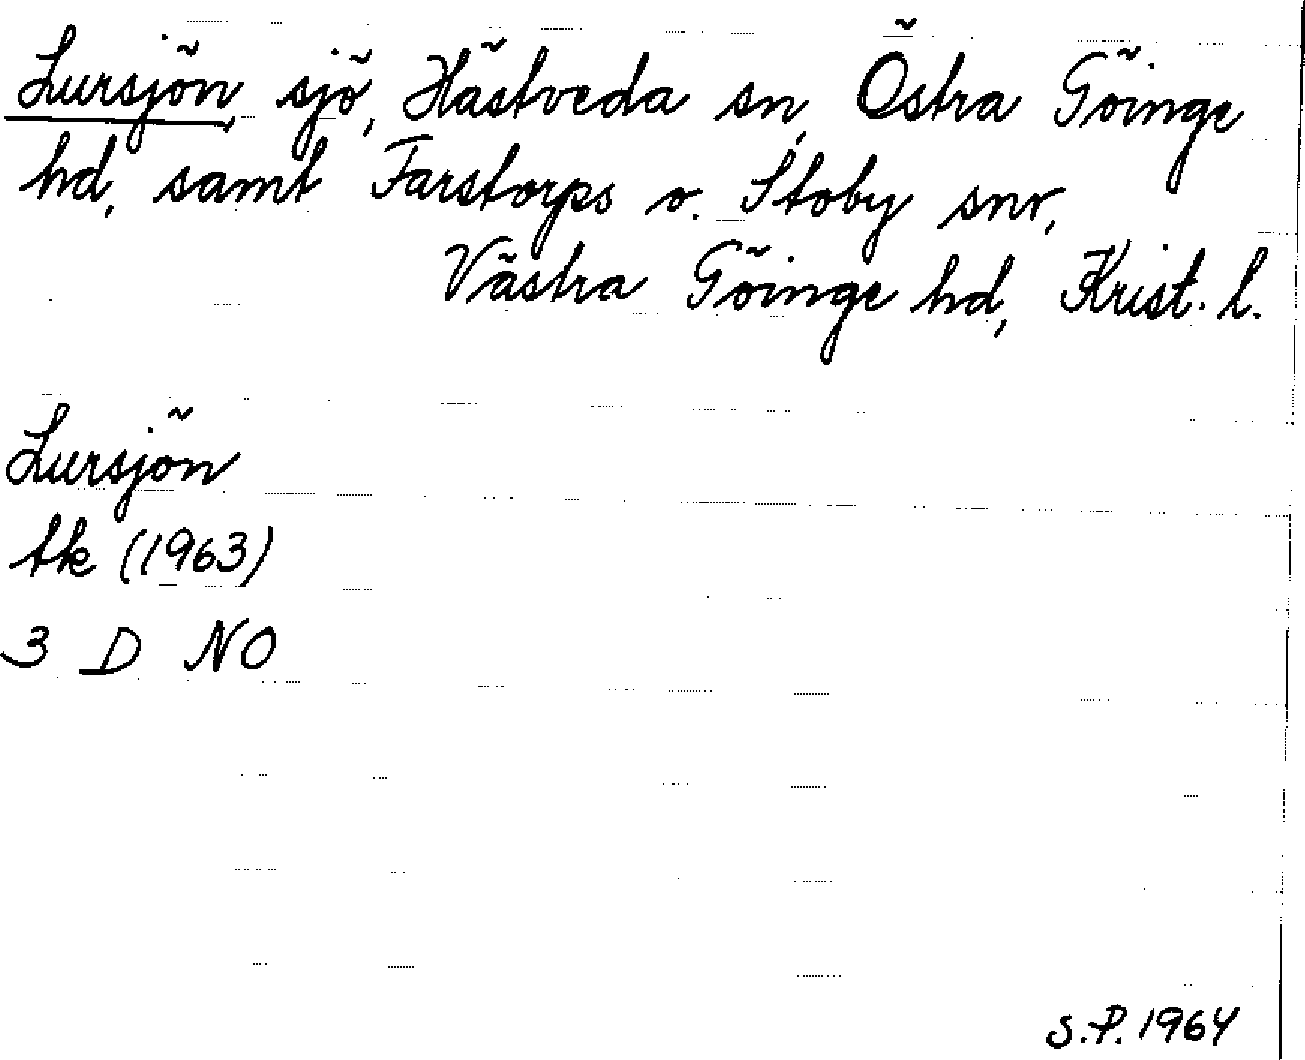 Lursjön, sjö, Hästveda sn, Östra Göinge
hd, samt Farstorps o. Stoby snr,
Västra Göinge hd, Krist. l.
Lursjön
tk (1963)
3 D NO
S.P. 1964